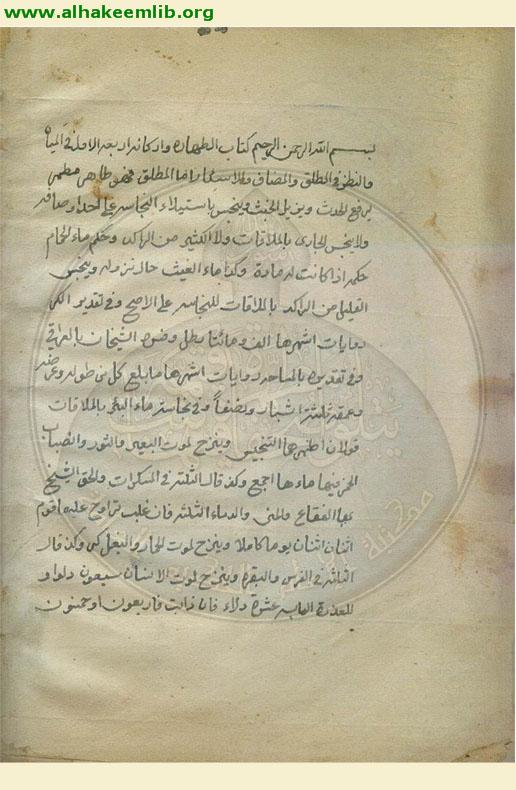 www.alhakeemlib.org
بسم الله الرحمن الرحيم كتاب الطهارة واركانه اربعة الاول في المياه
والنظر في المطلق والمضاف والاسئار اما المطلق فهو طاهر مطهر
يرفع الحدث ويزيل الخبث وينجس باستيلاء النجاسة على احد اوصافه
ولا ينجس الجارى بالملاقات ولا الكثير من الراكد وحكم ماء الحمام
حكمه اذا كانت له مادة وكذا ماء الغيث حال نزوله وينجس
القليل من الراكد بالملاقات للنجاسة على الاصح وفي تقدير الكر
روايات اشهرها الف ومائتا رطل وفسره الشيخان بالعراقي
وفي تقديره بالمساحة روايات اشهرها ما بلغ كل من طوله وعرضه
وعمقه ثلثة اشبار ونصفاً وفي نجاسة ماء البئر بالملاقات
قولان اظهرهما التنجيس وينزح لموت البعير والثور وانصباب
الخمر فيها ماءها اجمع وكذا قال الثلثة في المسكرات والحق الشيخ
بها الفقاع والمني والدماء الثلثة فان غلب تراوح عليها قوم
اثنان اثنان يوما كاملا وينزح لموت الحمار والبغل كر وكذا قال
الثلثة في الفرس والبقرة وينزح لموت الانسان سبعون دلوا و
للعذرة اليابسة عشرة دلاء فان ذابت فاربعون او خمسون